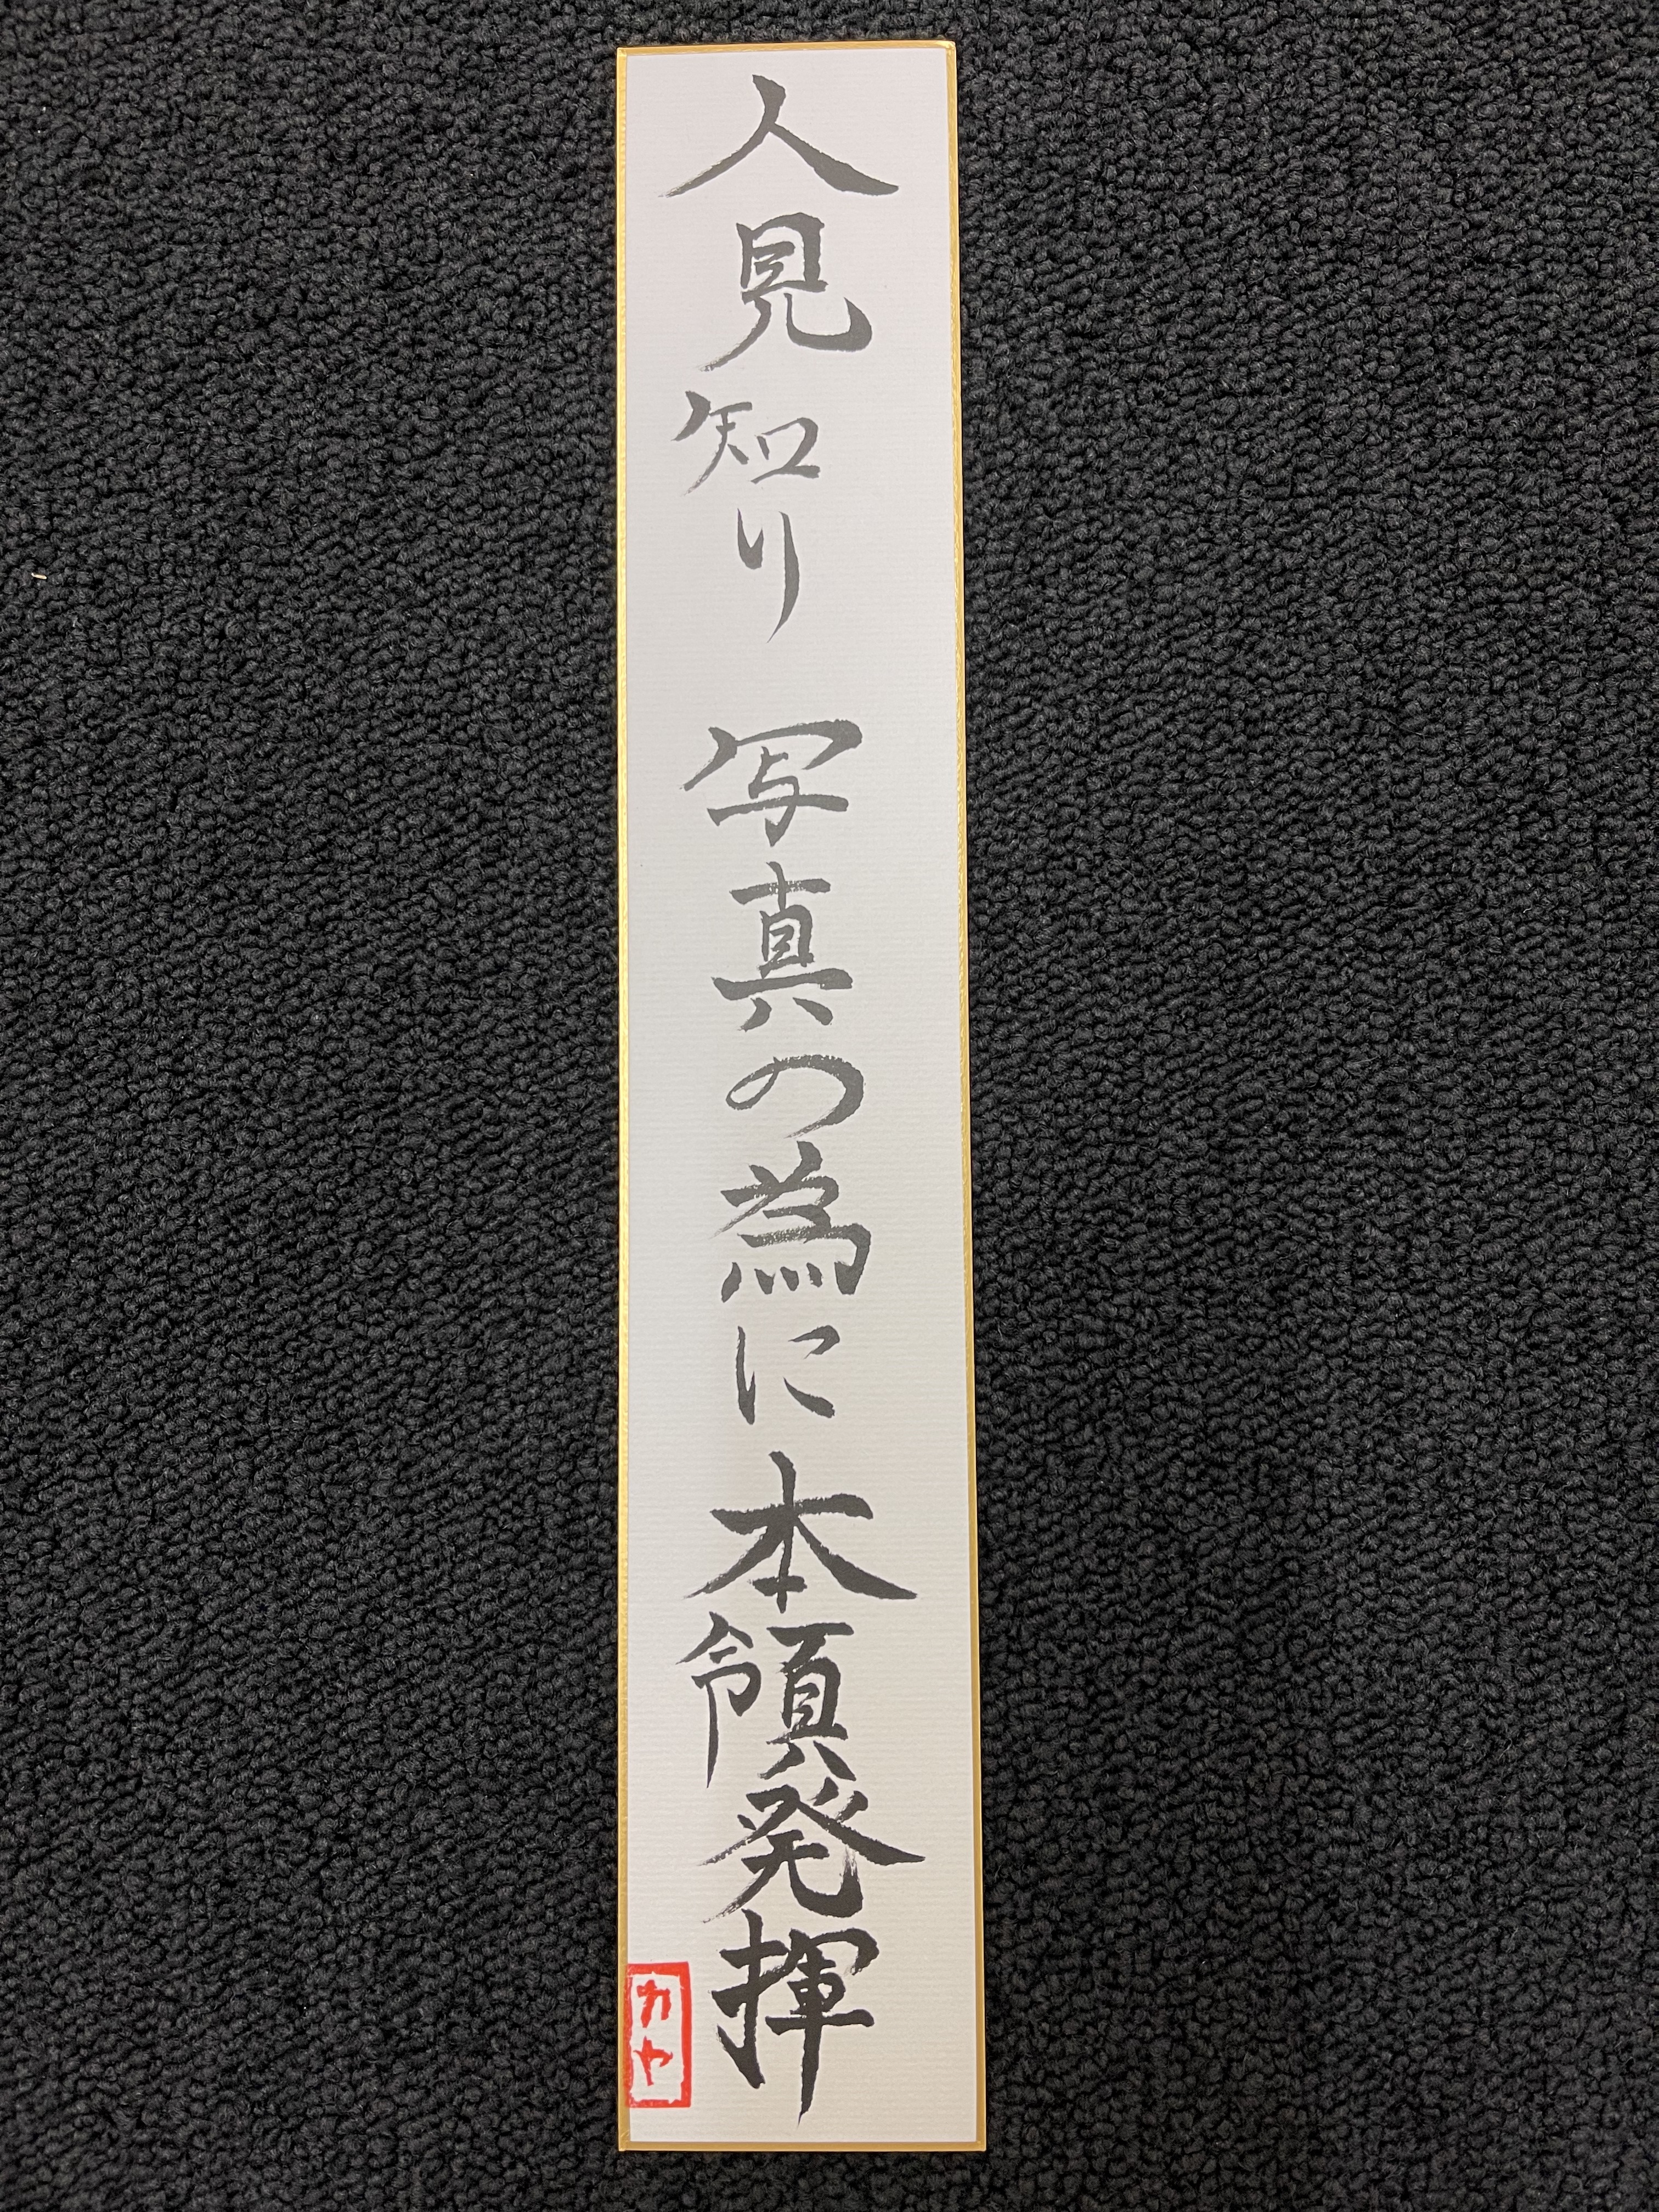 人見知り 写真の為に本領発揮
カヤ